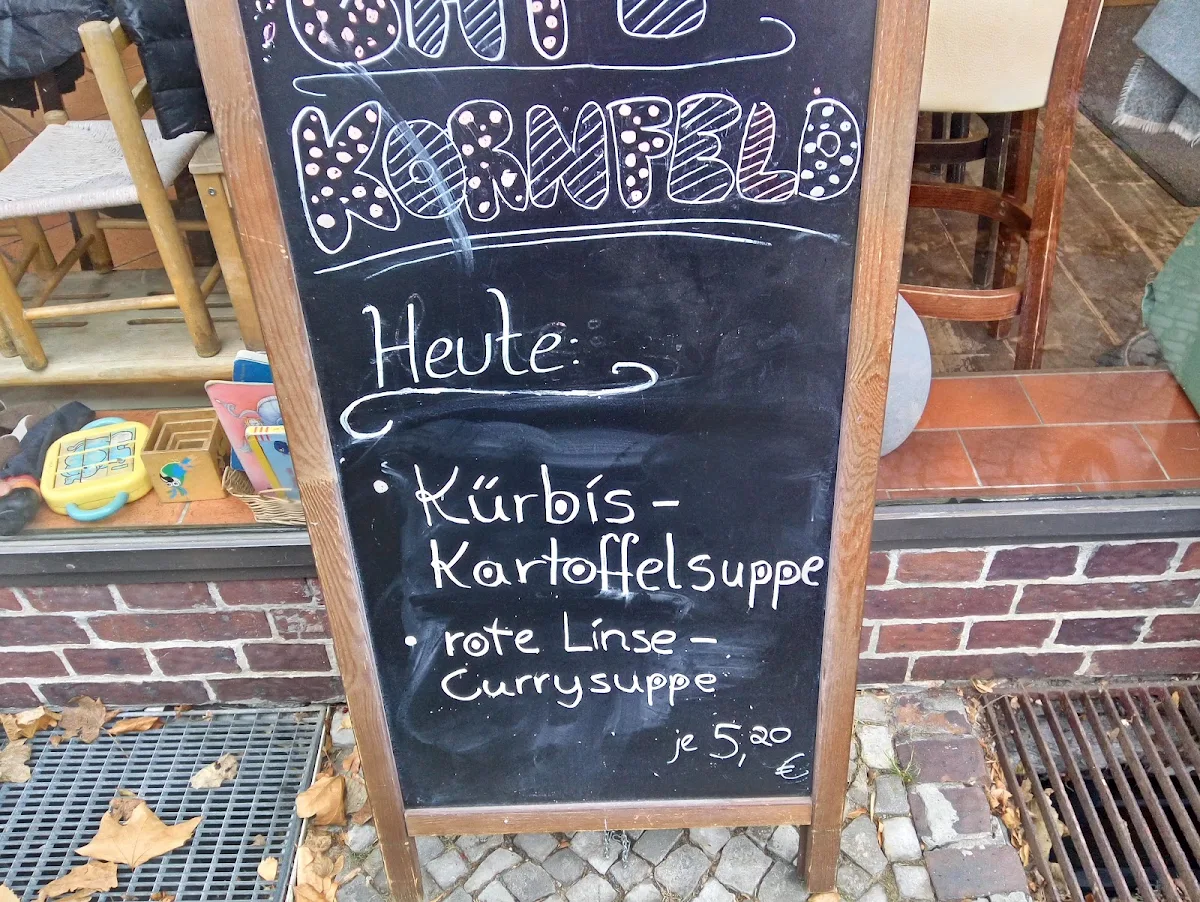 CAFE
KORNFELD
Heute:
• Kürbis-
Kartoffelsuppe
• rote Linse-
Currysuppe
je 5,20
€